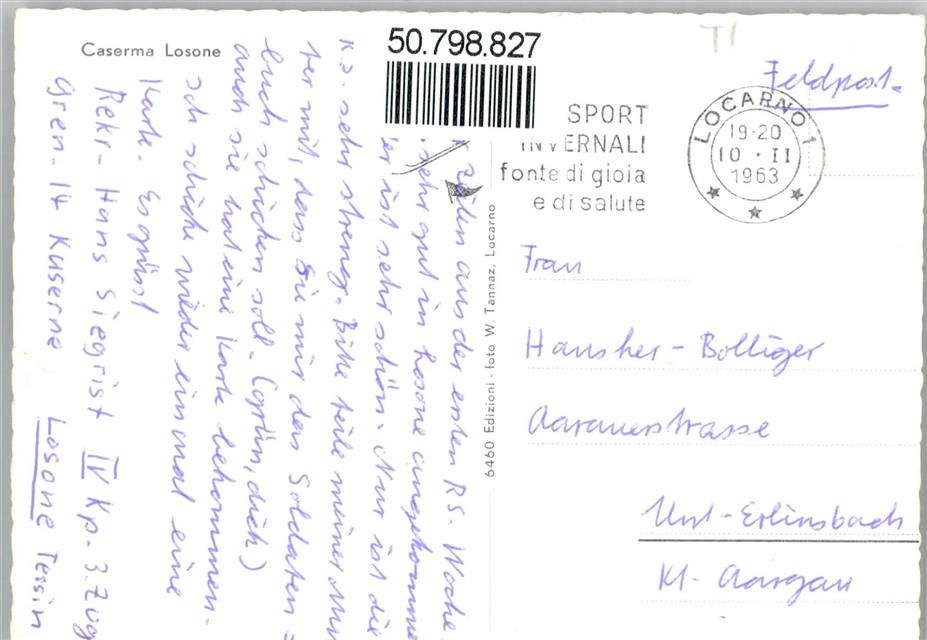 Caserma Losone
50.798.827
TI
Feldpost.
SPORT
INVERNALI
fonte di gioia
e di salute
LOCARNO 1
19-20
10 · II
1963
zeilen aus der ersten RS. Woche
sehr gut in Losone angekomme
er ist sehr schön. Nur ist die
Ks. sehr streng. Bitte teile meiner Mut
ter mit, dass sie mir das Soldaten=
buch schicken soll. (grün, dick)
auch sie hat eine Karte bekommen.
Ich schicke wieder einmal eine
Karte. Es grüsst
Rekr. Hans Siegrist IV Kp. 3. Zug
Gren. 14 Kaserne Losone Tessin
6460 Edizioni - foto W. Tannaz, Locarno
Frau
Hausher-Bolliger
Aarauerstrasse
Unt-Erlinsbach
Kt. Aargau